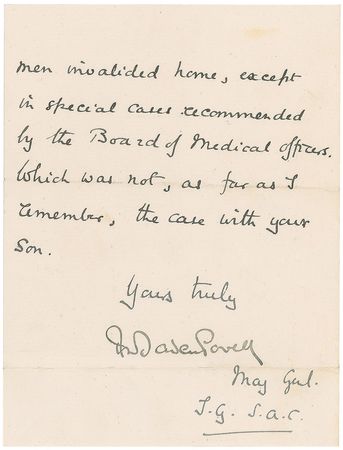 men invalided home, except
in special cases recommended
by the Board of Medical officers.
Which was not, as far as I
remember, the case with your
son.
Yours truly
RSBaden Powell
Maj Genl.
I.G. S.A.C.